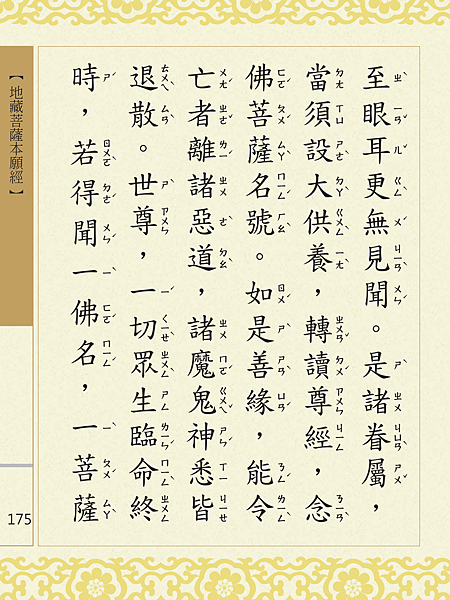 至眼耳更無見聞。是諸眷屬，
當須設大供養，轉讀尊經，念
佛菩薩名號。如是善緣，能令
亡者離諸惡道，諸魔鬼神悉皆
退散。世尊，一切眾生臨命終
時，若得聞一佛名，一菩薩
【地藏菩薩本願經】
175